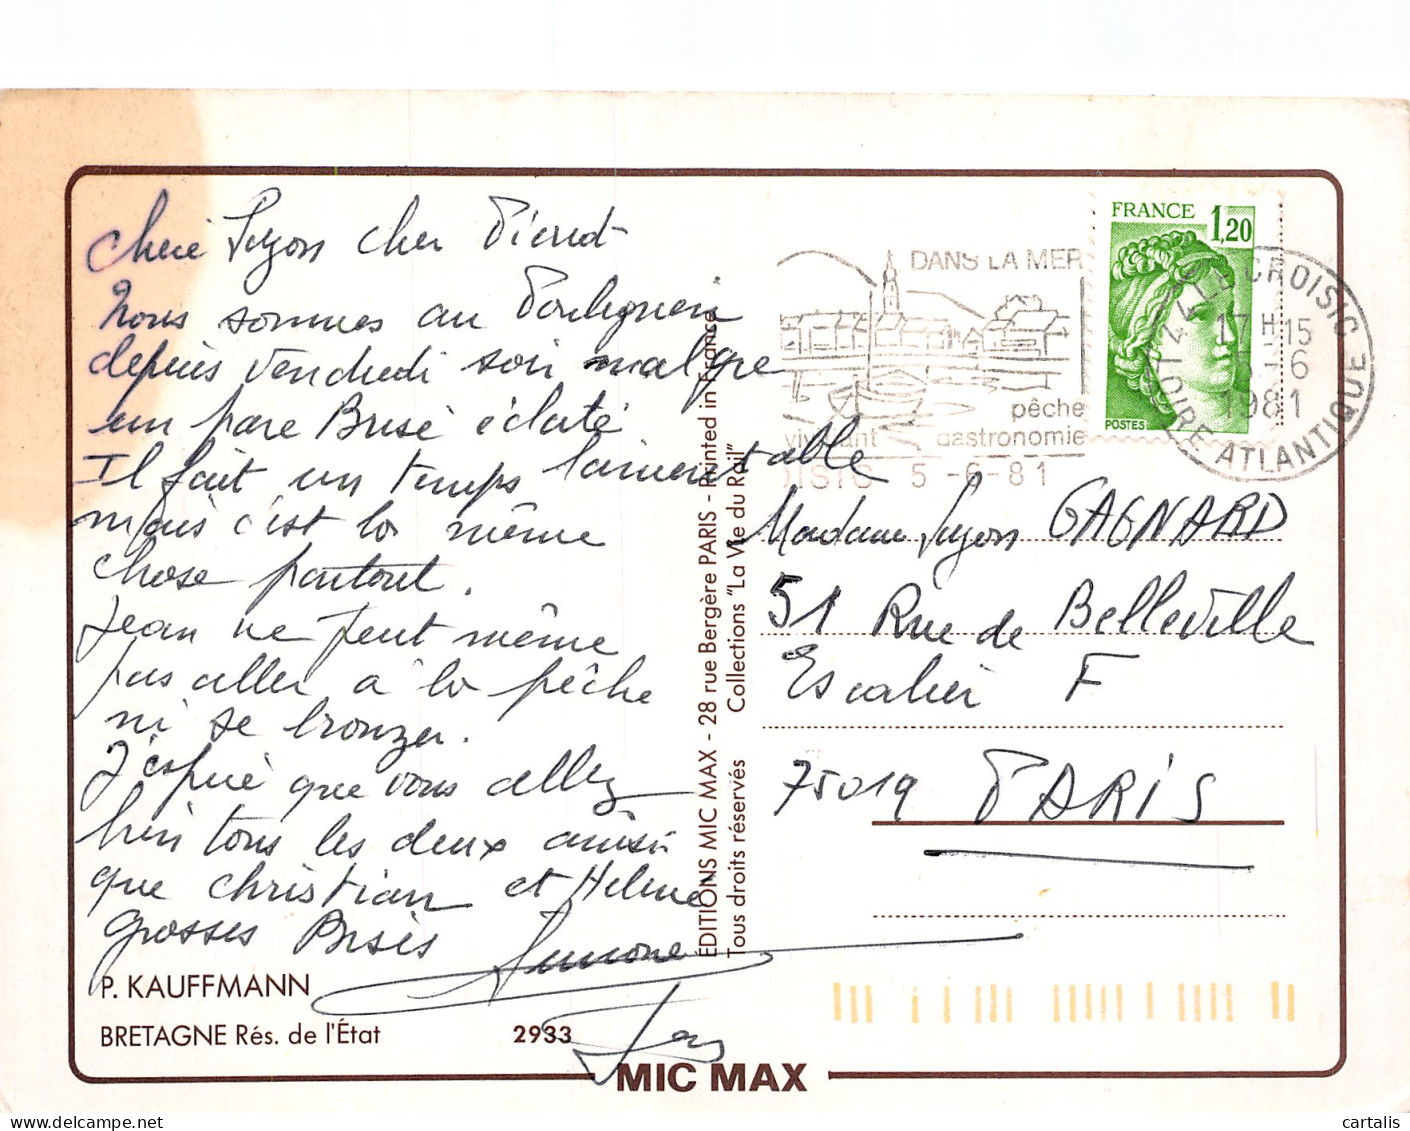 Cherie Suzon cher Pierrot
Nous sommes au Pouliguen
depuis vendredi soir malgre
un pare Brise éclaté
Il fait un temps lamentable
mais c'est la même
chose partout.
Jean ne peut même
pas aller à la pêche
ni se bronzer.
J'espère que vous allez
bien tous les deux ainsi
que christian et Helene
grosses Bises
Simone
Jean
P. KAUFFMANN
BRETAGNE Rés. de l'État 2933
MIC MAX
EDITIONS MIC MAX - 28 rue Bergère PARIS - Printed in France
Tous droits réservés Collections "La Vie du Rail"
DANS LA MER
pêche
gastronomie
5-6-81
FRANCE 1,20
POSTES
44 LE CROISIC
17 H 15
-6
1981
LOIRE ATLANTIQUE
Madame Suzon GAGNARD
51 Rue de Belleville
Escalier F
75019 PARIS
cartalis